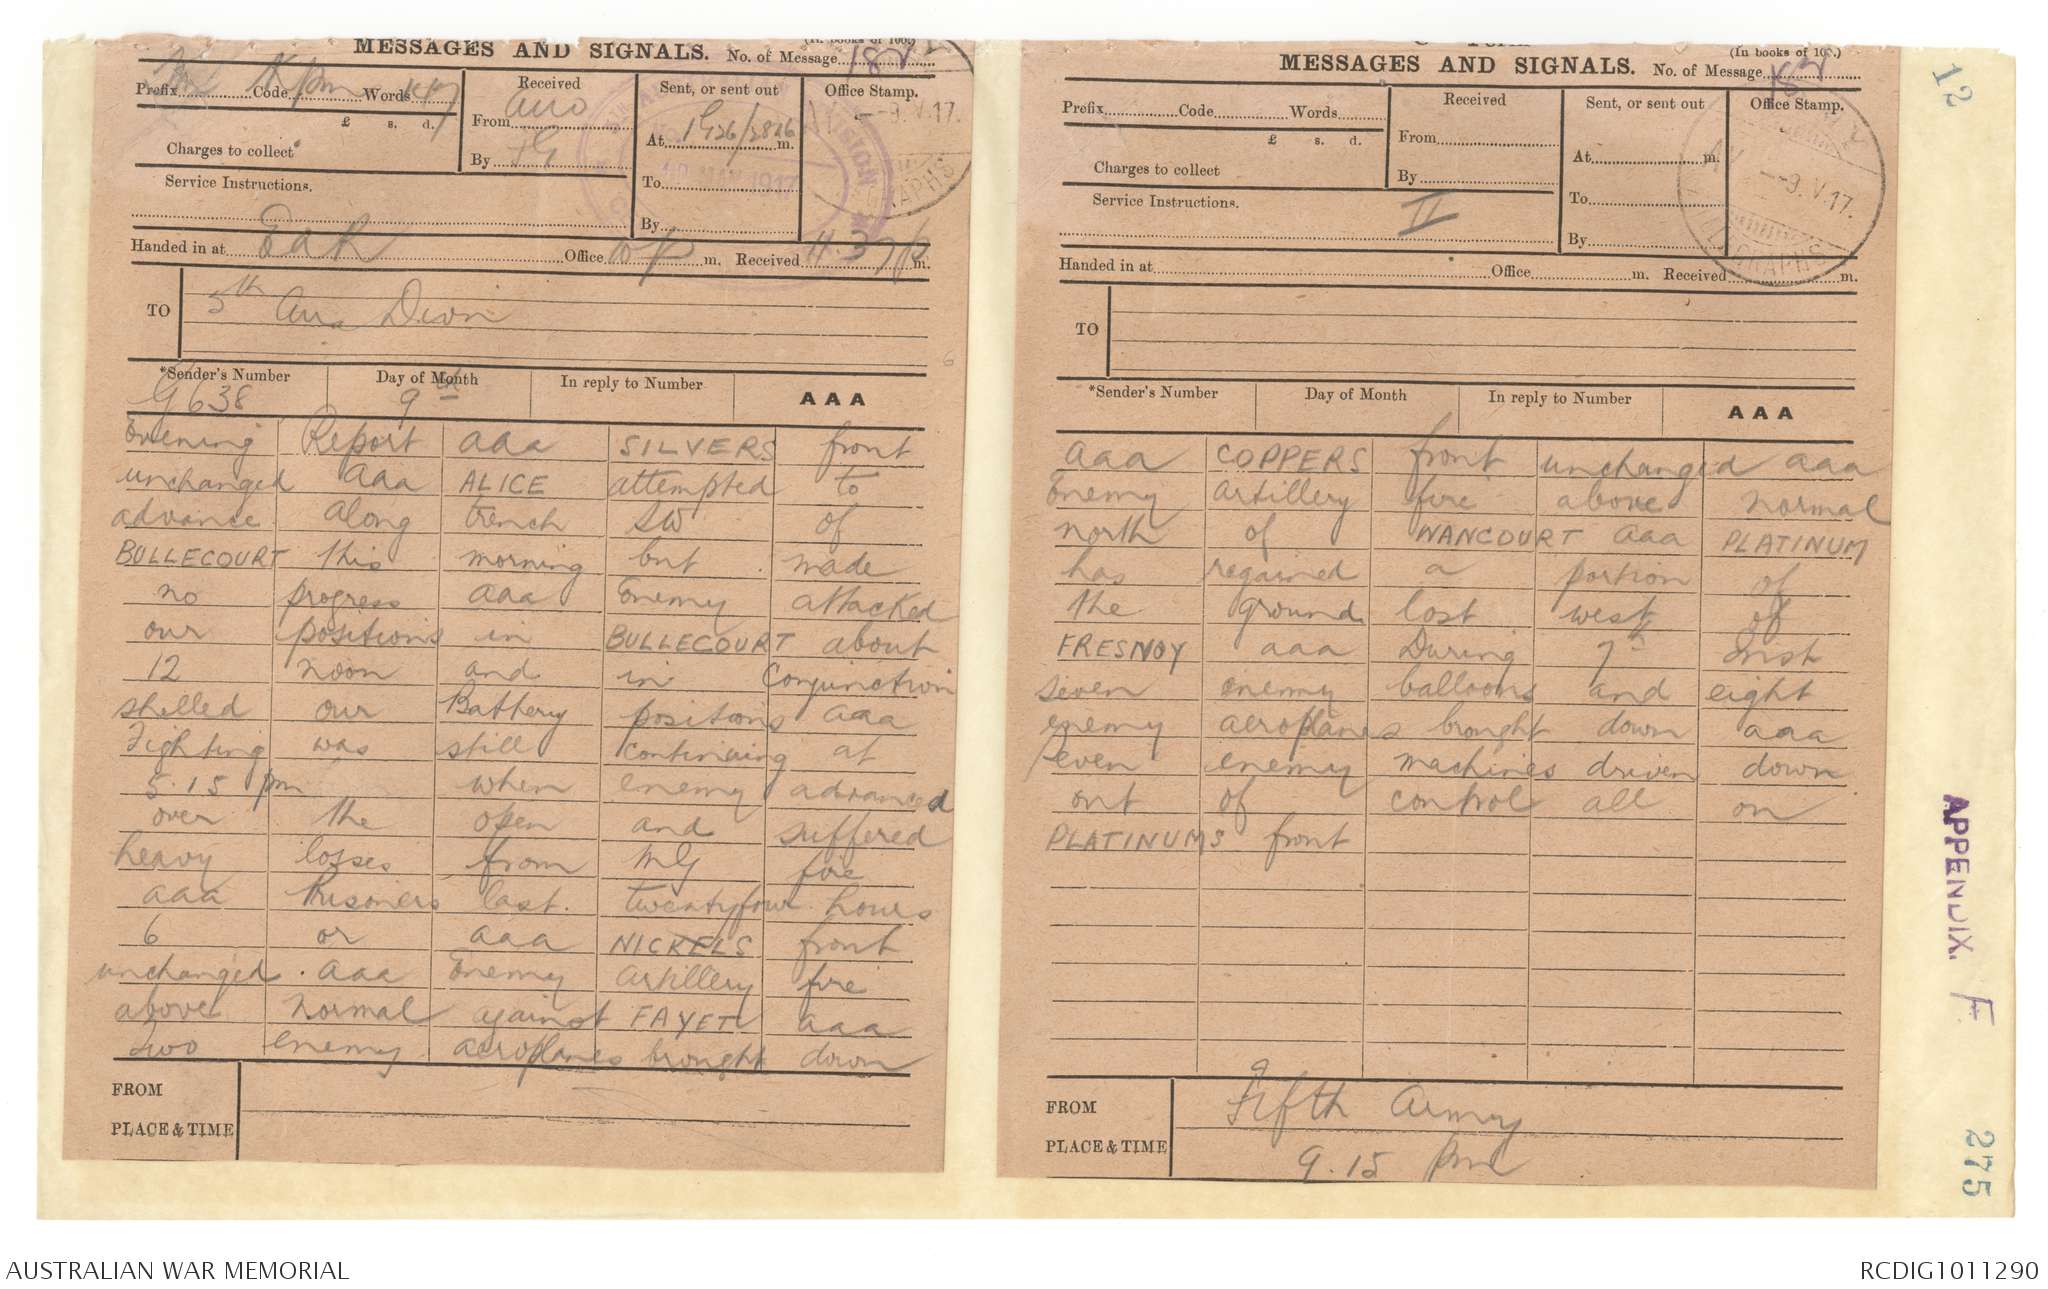 MESSAGES AND SIGNALS. No. of Message 182
Prefix Code Words 147
Received
From
By
Sent, or sent out
At m.
To
By
Office Stamp.
-9.V.17.
£ s. d.
Charges to collect
Service Instructions.
Handed in at Office m. Received 11.37 p m.
TO 5th Aus Divn
*Sender's Number Day of Month In reply to Number AAA
G638 9th
Evening Report aaa SILVERS front
unchanged aaa ALICE attempted to
advance along trench SW of
BULLECOURT this morning but made
no progress aaa Enemy attacked
our positions in BULLECOURT about
12 noon and in Conjunction
shelled our Battery positions aaa
Fighting was still continuing at
5.15 pm when enemy advanced
over the open and suffered
heavy losses from MG fire
aaa Prisoners last twentyfour hours
6 or aaa NICKELS front
unchanged aaa Enemy artillery fire
above normal against FAYET aaa
Two enemy aeroplanes brought down
FROM
PLACE & TIME
(In books of 100.)
MESSAGES AND SIGNALS. No. of Message 182
Prefix Code Words
Received
From
By
Sent, or sent out
At m.
To
By
Office Stamp.
-9.V.17.
£ s. d.
Charges to collect
Service Instructions. II
Handed in at Office m. Received m.
TO
*Sender's Number Day of Month In reply to Number AAA
aaa COPPERS front unchanged aaa
Enemy artillery fire above normal
north of WANCOURT aaa PLATINUM
has regained a portion of
the ground lost west of
FRESNOY aaa During 7th Inst
seven enemy balloons and eight
enemy aeroplanes brought down aaa
seven enemy machines driven down
out of control all on
PLATINUMS front
FROM Fifth Army
PLACE & TIME 9.15 pm
12
APPENDIX. F
275
AUSTRALIAN WAR MEMORIAL
RCDIG1011290